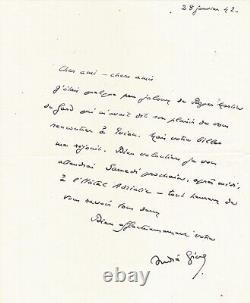 28 janvier 42.
Cher ami – chers amis
J'étais quelque peu jaloux de Roger Martin
du Gard qui m'avait dit son plaisir de vous
rencontrer à Evian. Mais votre billet
me réjouit. Bien volontiers je vous
attendrai Samedi prochain, après-midi,
à l'Hôtel Adriatic – tout heureux de
vous savoir tous deux
Bien affectueusement votre
André Gide